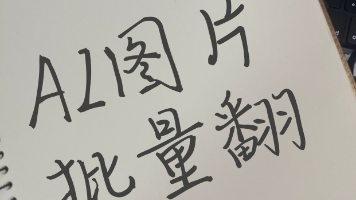 AI图片
批量翻